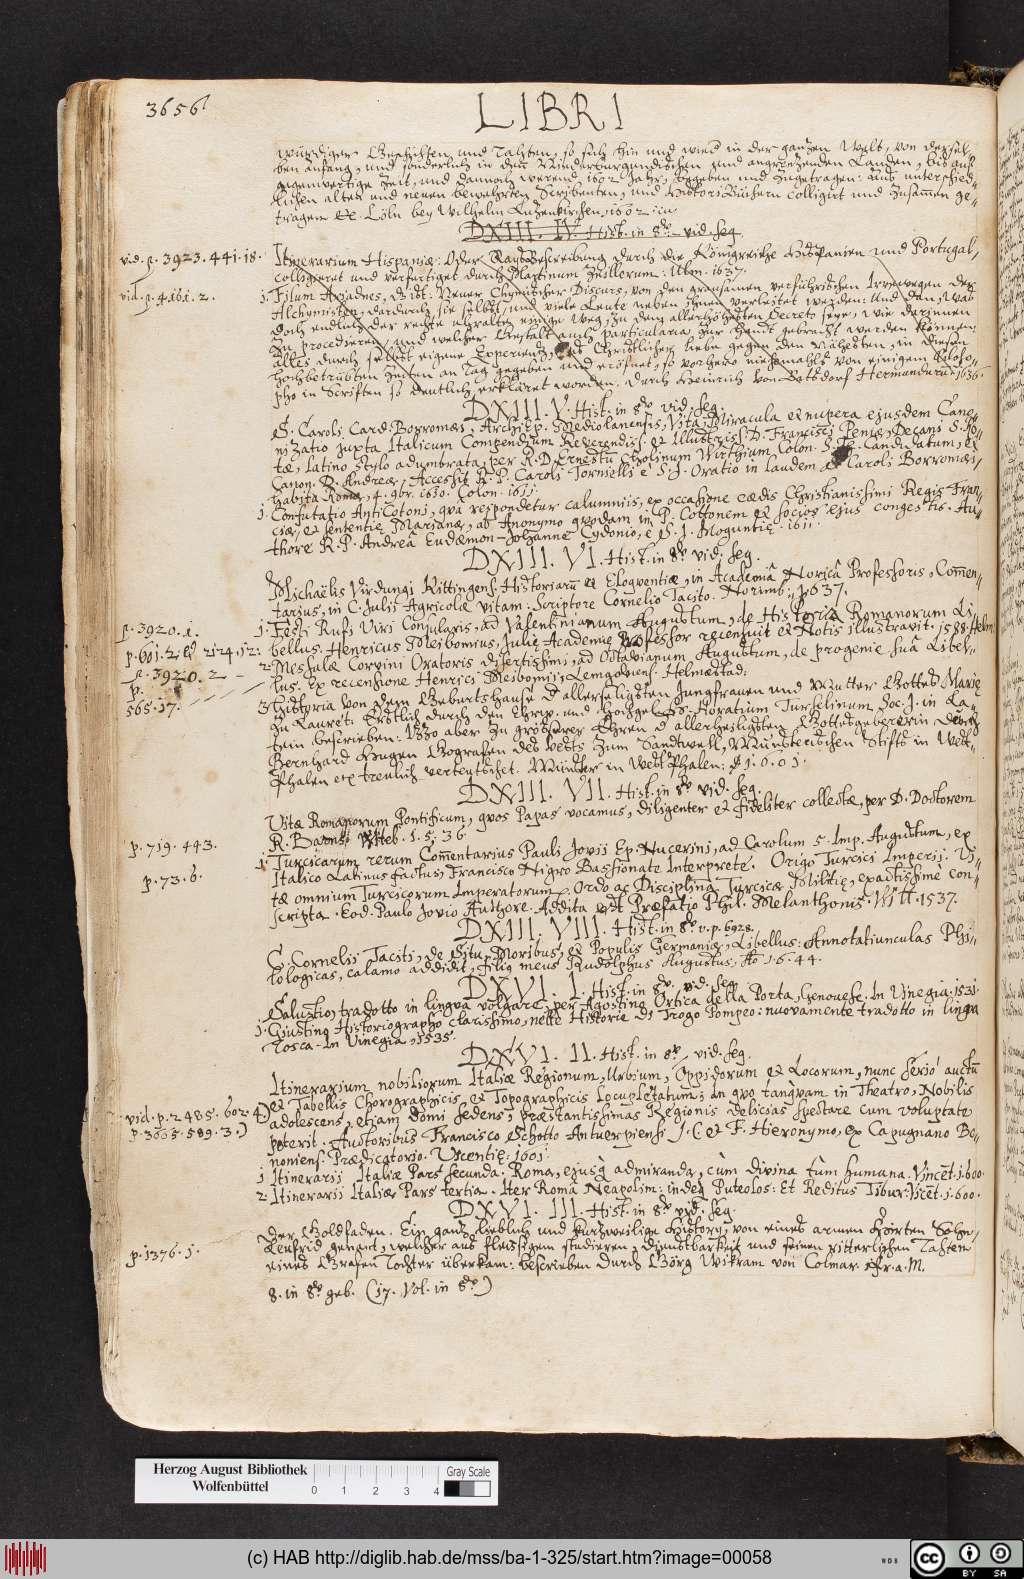 3656
LIBRI
würdigen Geschichten und Tahten, so sich hin und wied in der gantzen Welt, von dersel-
ben anfang, und sonderlich in den Niderburgundischen und angrentzenden Landen, biß auf
gegenwertige Zeit, und dannoch werend 1602 Jahr, begeben und zugetragen: Aus unterschied-
lichen alten und neuen bewehrten Scribenten, und Histori Büchern colligirt und zusam̄en ge-
tragen etc. Cöln bey Wilhelm Lützenkirchen, 1602. in
DXIII. IV. Hist. in 8vo vid. seq.
vid. p. 3923. 441. 18.
Itinerarium Hispaniæ: Oder Raysbeschreibung durch die Königreiche Hispanien und Portugal,
colligieret und verfertiget durch Martinum Zeillerum: Ulm. 1637.
vid. p. 4. 161. 2.
1. Filum Ariadnes, d. ist: Neuer Chymischer Discurs, von den grausamen verführischen Irrewegen der
Alchymisten, dardurch sie selbst, und viele Leute neben ihnen verleitet werden: Und dan, was
doch endlich der rechte uhralte einige Weg, zu dem allerhöhesten Secreto seye, wie darinnen
zu procedieren, und welcher Gestalt auch particularia zur Handt gebracht werden können,
alles durch selbst eigene Experientz, aus Christlicher liebe gegen den nähesten, in diesen
hochbetrübten Zeiten an Tag gegeben und eröfnet, so vorhero niehemahls von einigem Philoso-
pho in Scriften so deutlich erkläret worden, durch Heinrich von Batsdorf Hermundurū. 1636.
DXIII. V. Hist. in 8vo vid. seq.
S. Caroli Card. Borromæi, Archiep. Mediolanensis, Vita, Miracula et nupera ejusdem Cano-
nizatio juxta Italicum Compendium Reverendis. et Illustris. D. Francisci Peniæ, Decani S. Ro-
tæ, Latino stylo adumbrata, per R. D. Ernestū Cholinum Wirthium Colon. S. Th. Candidatum, et
Canon. D. Andreæ, Accessit R. P. Caroli Tornielli è S. J. Oratio in laudem S. Caroli Borromæi,
habita Romæ, 4. 9br. 1610. Colon. 1611.
1. Confutatio AntiCotoni, qvâ respondetur calumniis, ex occasione cædis Christianissimi Regis Fran-
ciæ, et sententiæ Marianæ, ab Anonymo qvodam in P. Cottonem et socios ejus congestis. Au-
thore R. P. Andreâ Eudæmon-Johanne Cydonio, è S. J. Moguntiæ. 1611.
DXIII. VI. Hist. in 8vo vid. seq.
Michaëlis Virdungi Kittingens. Historiarū et Eloqventiæ, in Academiâ Noricâ Professoris, Com̄en-
tarius, in C. Julii Agricolæ vitam: Scriptore Cornelio Tacito. Norimb. 1637.
p. 3920. 1.
1. Festi Rufi Viri Consularis, ad Valentinianum Augustum, de Historiâ Romanorum Li-
p. 601. 2. et 2174. 12:
bellus. Henricus Meibomius, Juliæ Academiæ Professor recensuit et Notis illustravit. 1588. Helm.
p. 3920. 2
2. Messalæ Corvini Oratoris disertissimi, ad Octavianum Augustum, de progenie suâ Libel-
p.
lus. Ex recensione Henrici Meibomii, Lemgoviens. Helmestad:
565. 17.
3. Historia von dem Geburtshause d allerseligsten Jungfrauen und Mutter Gottes Marie
zu Lauret: Erstlich durch den Ehrw. und Hochgel. H. Horatium Turselinum Soc. J. in La-
tein beschrieben: Itzo aber zu grösserer Ehren d allerheiligsten Gottesgebererin durch
Bernhard Hugen Gografen des Vests zum Sandtwell, Münsterischen Stifts in West-
Phalen etc. treulich verteutschet. Münster in WestPhalen: 1.6.01.
DXIII. VII. Hist. in 8vo vid. seq.
Vitæ Romanorum Pontificum, qvos Papas vocamus, diligenter et fideliter collectæ, per D. Doctorem
p. 719. 443.
R. Barns. Witteb. 1.5.36
p. 73. 6.
1. Turcicarum rerum Com̄entarius Pauli Jovii Ep. Nucerini, ad Carolum 5. Imp. Augustum, ex
Italico Latinus factus, Francisco Nigro Bassianate Interprete. Origo Turcici Imperii. Vi-
tæ omnium Turcicorum Imperatorum. Ordo ac Disciplina Turcicæ Militiæ, exactissimè con-
scripta. Eod. Paulo Jovio Authore. Addita est Præfatio Phil. Melanthonis. Witt. 1537.
DXIII. VIII. Hist. in 8vo v. p. 6928.
C. Cornelii Taciti, de Situ, Moribus, et Populis Germaniæ, Libellus: Annotatiunculas Phi-
lologicas, calamo addidit, filiꝰ meus Rudolphus Augustus, Ao 1.6.44.
DXVI. I. Hist. in 8vo. vid. seq.
Salustio, tradotto in lingva volgare, per Agostino Ortica della Porta, Genovese. In Vinegia. 1531.
1. Giustino Historiographo clarissimo, nelle Historie di Trogo Pompeo: nuovamente tradotto in lingva
Tosca. In Vinegia, 1535.
DXVI. II. Hist. in 8vo, vid. seq.
Itinerarium nobiliorum Italiæ Regionum, Urbium, Oppidorum et Locorum, nunc seriò auctū
vid. p. 2485. 602. 4)
et Tabellis Chorographicis, et Topographicis locupletatum; in qvo tanqvam in Theatro, Nobilis
p. 3605. 589. 3.)
adolescens, etjam domi sedens, præstantissimas Regionis delicias spectare cum voluptate
poterit. Auctoribus Francisco Schotto Antverpiensi J. C. et F. Hieronymo, ex Capugnano Bo-
noniens. Prædicatorio. Vicentiæ: 1601.
1 Itinerarii Italiæ Pars secunda. Roma, ejusq̀ admiranda, cùm divina tùm humana. Vincet. 1.600.
2 Itinerarii Italiæ Pars tertia. Iter Româ Neapolim: indeq̀ Puteolos: Et Reditus Tibur. Vicēt. 1.600.
DXVI. III. Hist. in 8vo vid. seq.
p. 1376. 1.
Der Goldfaden. Ein gantz lieblich und kurtzweilige Histori, von eines armen Hirten Sohn,
Leufrid genant, welcher aus fleissigem studieren, Dienstbarkeit und seinen ritterlichen Tahten
eines Grafen Tochter überkam: beschrieben durch Görg Wikram von Colmar. Fr. a. M.
8. in 8vo geb. (17. Vol. in 8vo)
Herzog August Bibliothek
Wolfenbüttel
0 1 2 3 4
Gray Scale
(c) HAB http://diglib.hab.de/mss/ba-1-325/start.htm?image=00058
WDB
cc BY SA